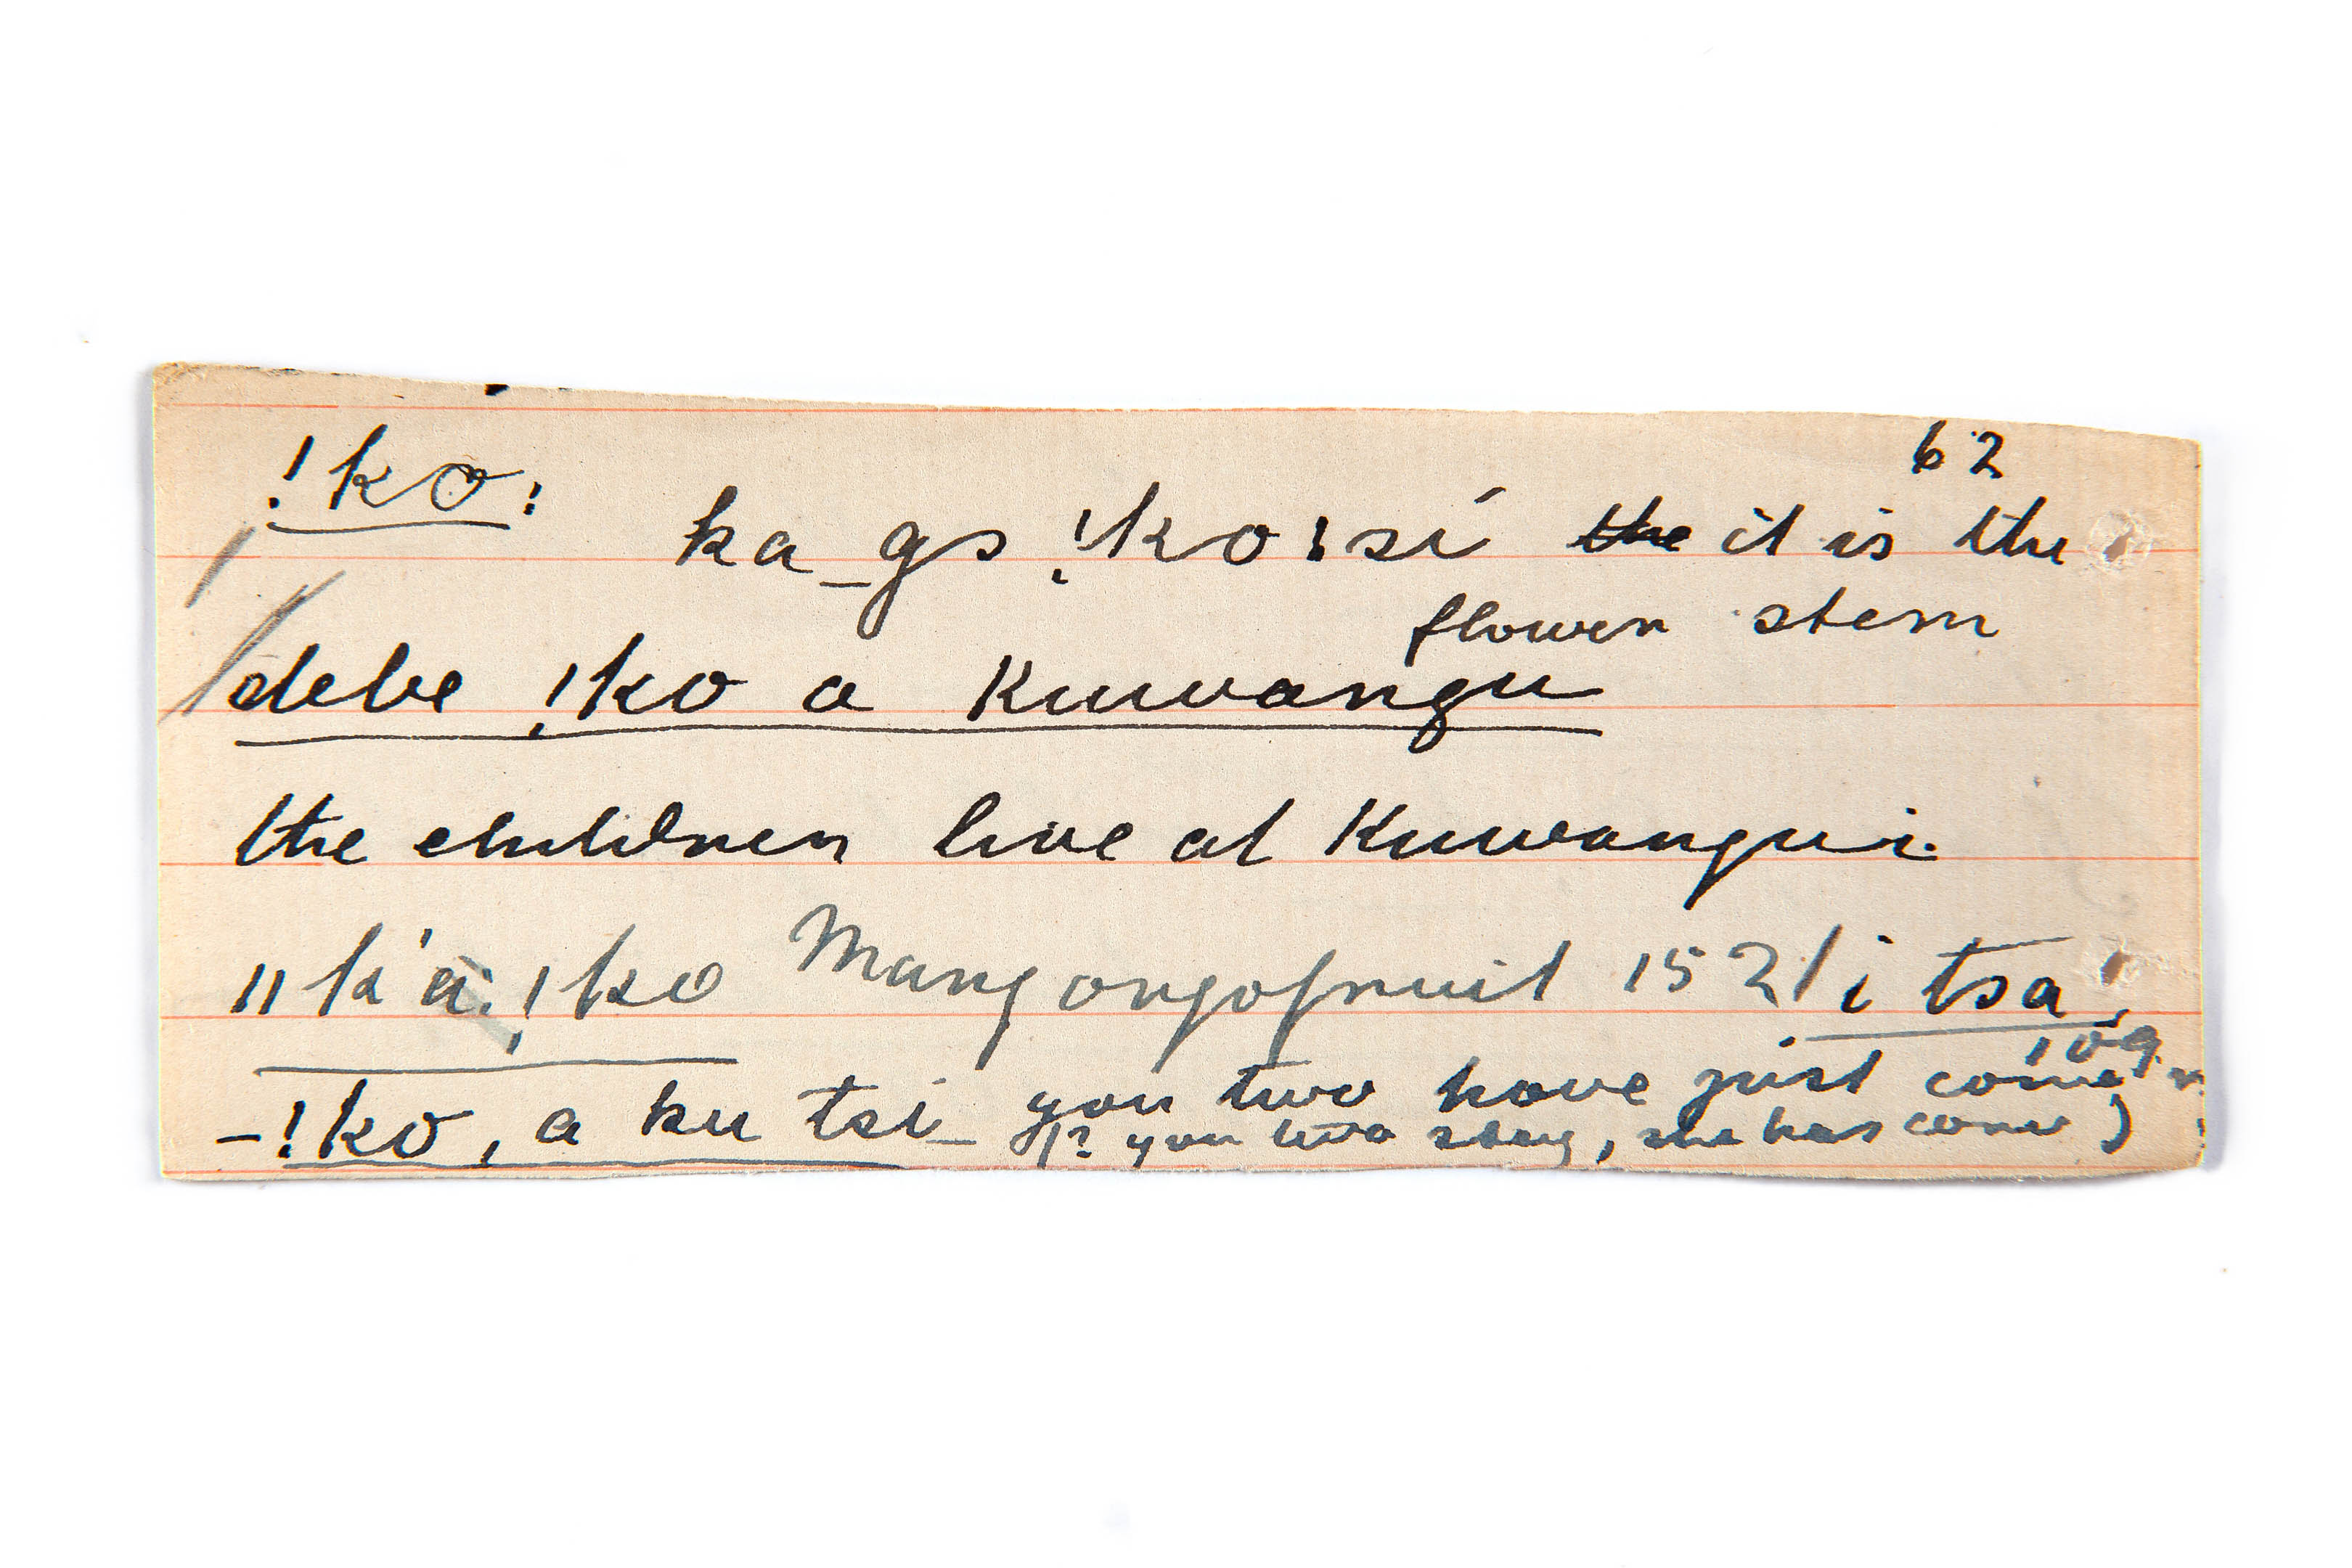 62
!ko:
ka_gs !ko:si ~~the~~ it is the
flower stem
debe !ko a Kuwangu
the children live at Kuwangui.
ǁk'a: !ko Mangongofruit 152/ i tsa
109
-!ko, a ku tsi_ you two have just come
(? you two stay, she has come)